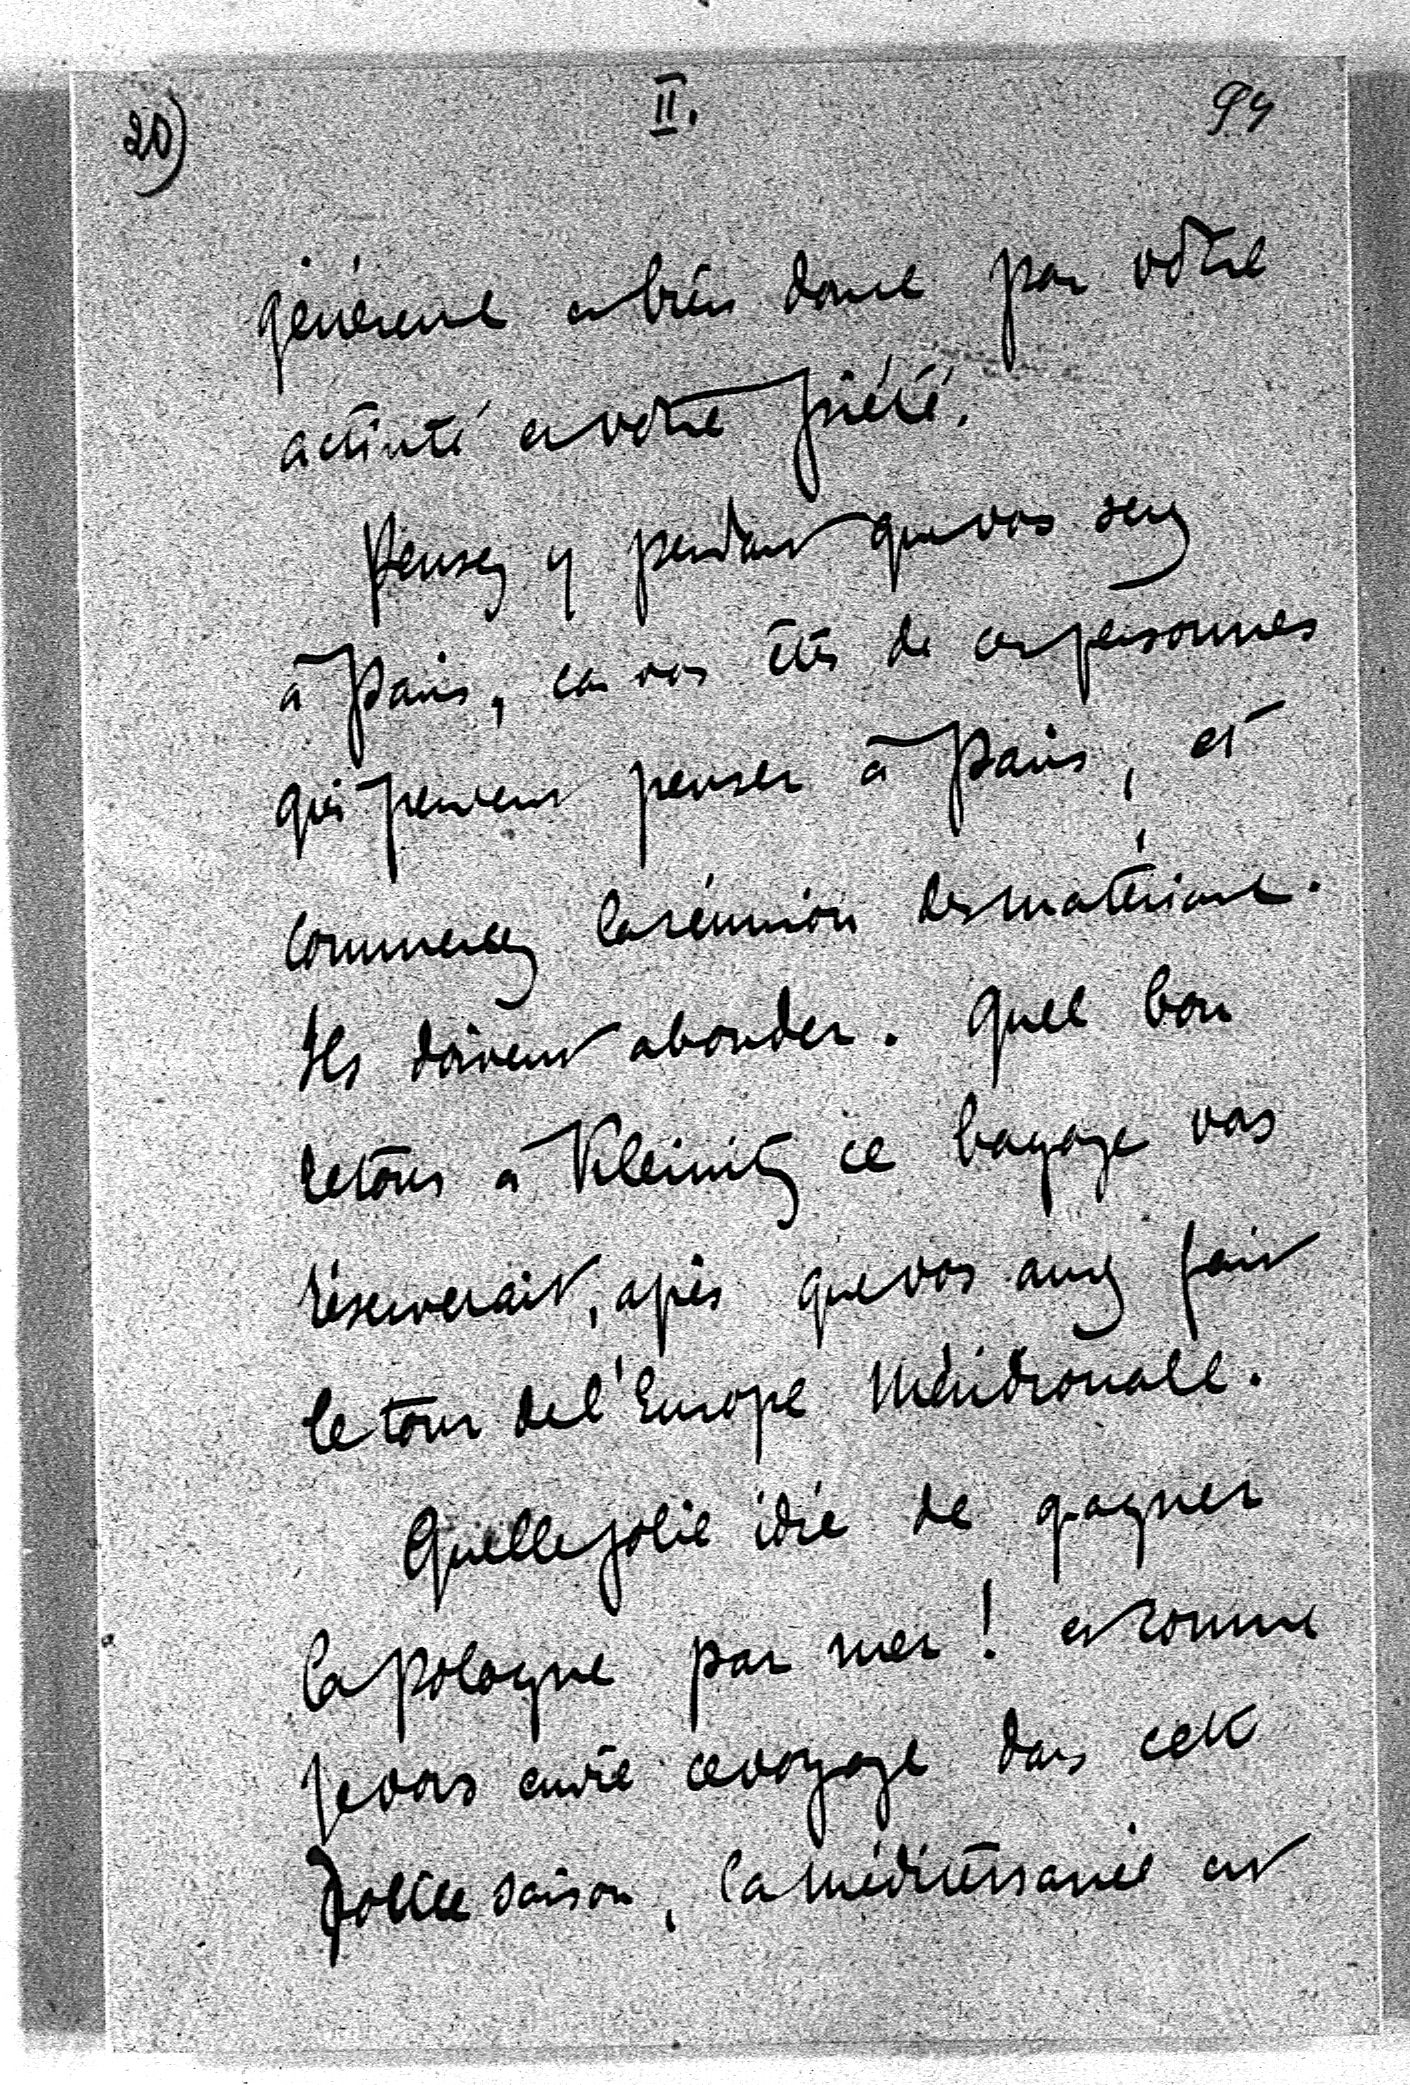 20) II. 94
généreuse et bien douce par votre
activité et votre piété.
Pensez y pendant que vos serez
à Paris, car vos êtes de ces personnes
qui peuvent penser à Paris, et
commencez la réunion des matériaux.
Ils doivent abonder. Quel bon
retour à Kleinitz ce bagage vos
réserverait, après que vos aurez fait
le tour de l'Europe Méridionale.
Quelle jolie idée de gagner
la Pologne par mer! et comme
je vos envie ce voyage dans cette
saison, la méditerranée est